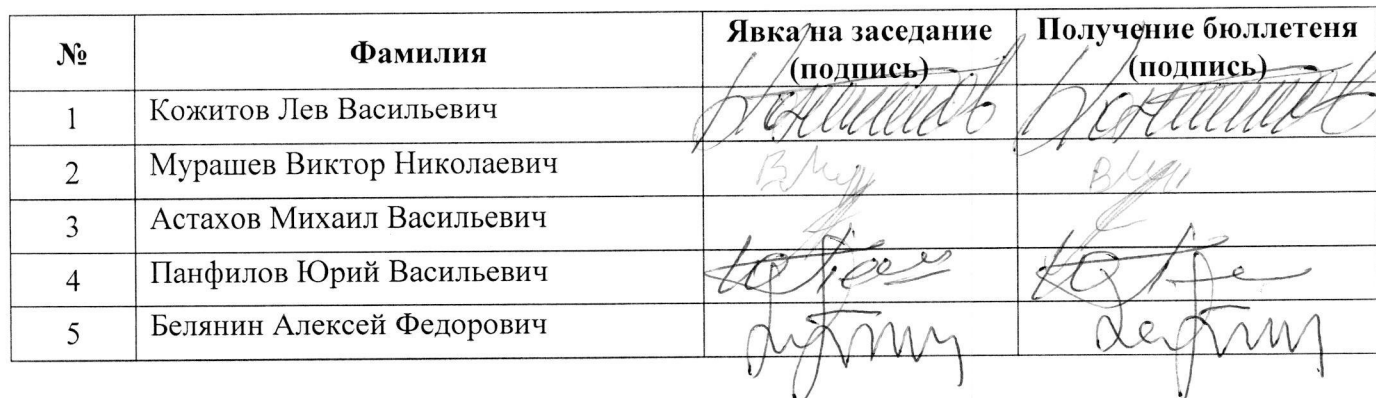 № Фамилия Явка на заседание (подпись) Получение бюллетеня (подпись)
1 Кожитов Лев Васильевич
2 Мурашев Виктор Николаевич
3 Астахов Михаил Васильевич
4 Панфилов Юрий Васильевич
5 Белянин Алексей Федорович